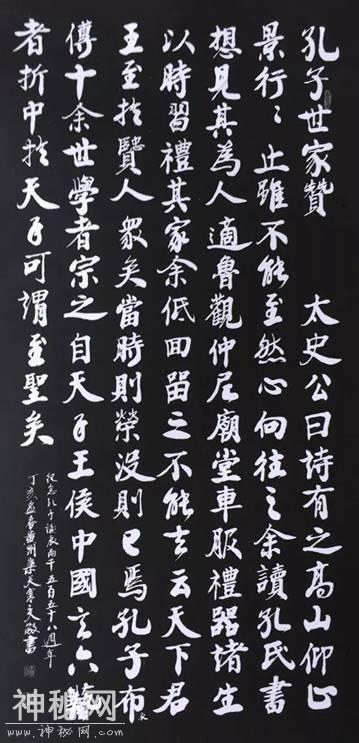 孔子世家贊 太史公曰詩有之高山仰止
景行:止雖不能至然心向往之余讀孔氏書
想見其為人適魯觀仲尼廟堂車服禮器諸生
以時習禮其家余低回留之不能去云天下君
王至於賢人眾矣當時則榮沒則已焉孔子布衣
傳十余世學者宗之自天子王侯中國言六藝
者折中於天子可謂至聖矣
紀念孔子誕辰兩千五百五十八週年
丁亥孟春黃州
神秘网
www.神秘网.com